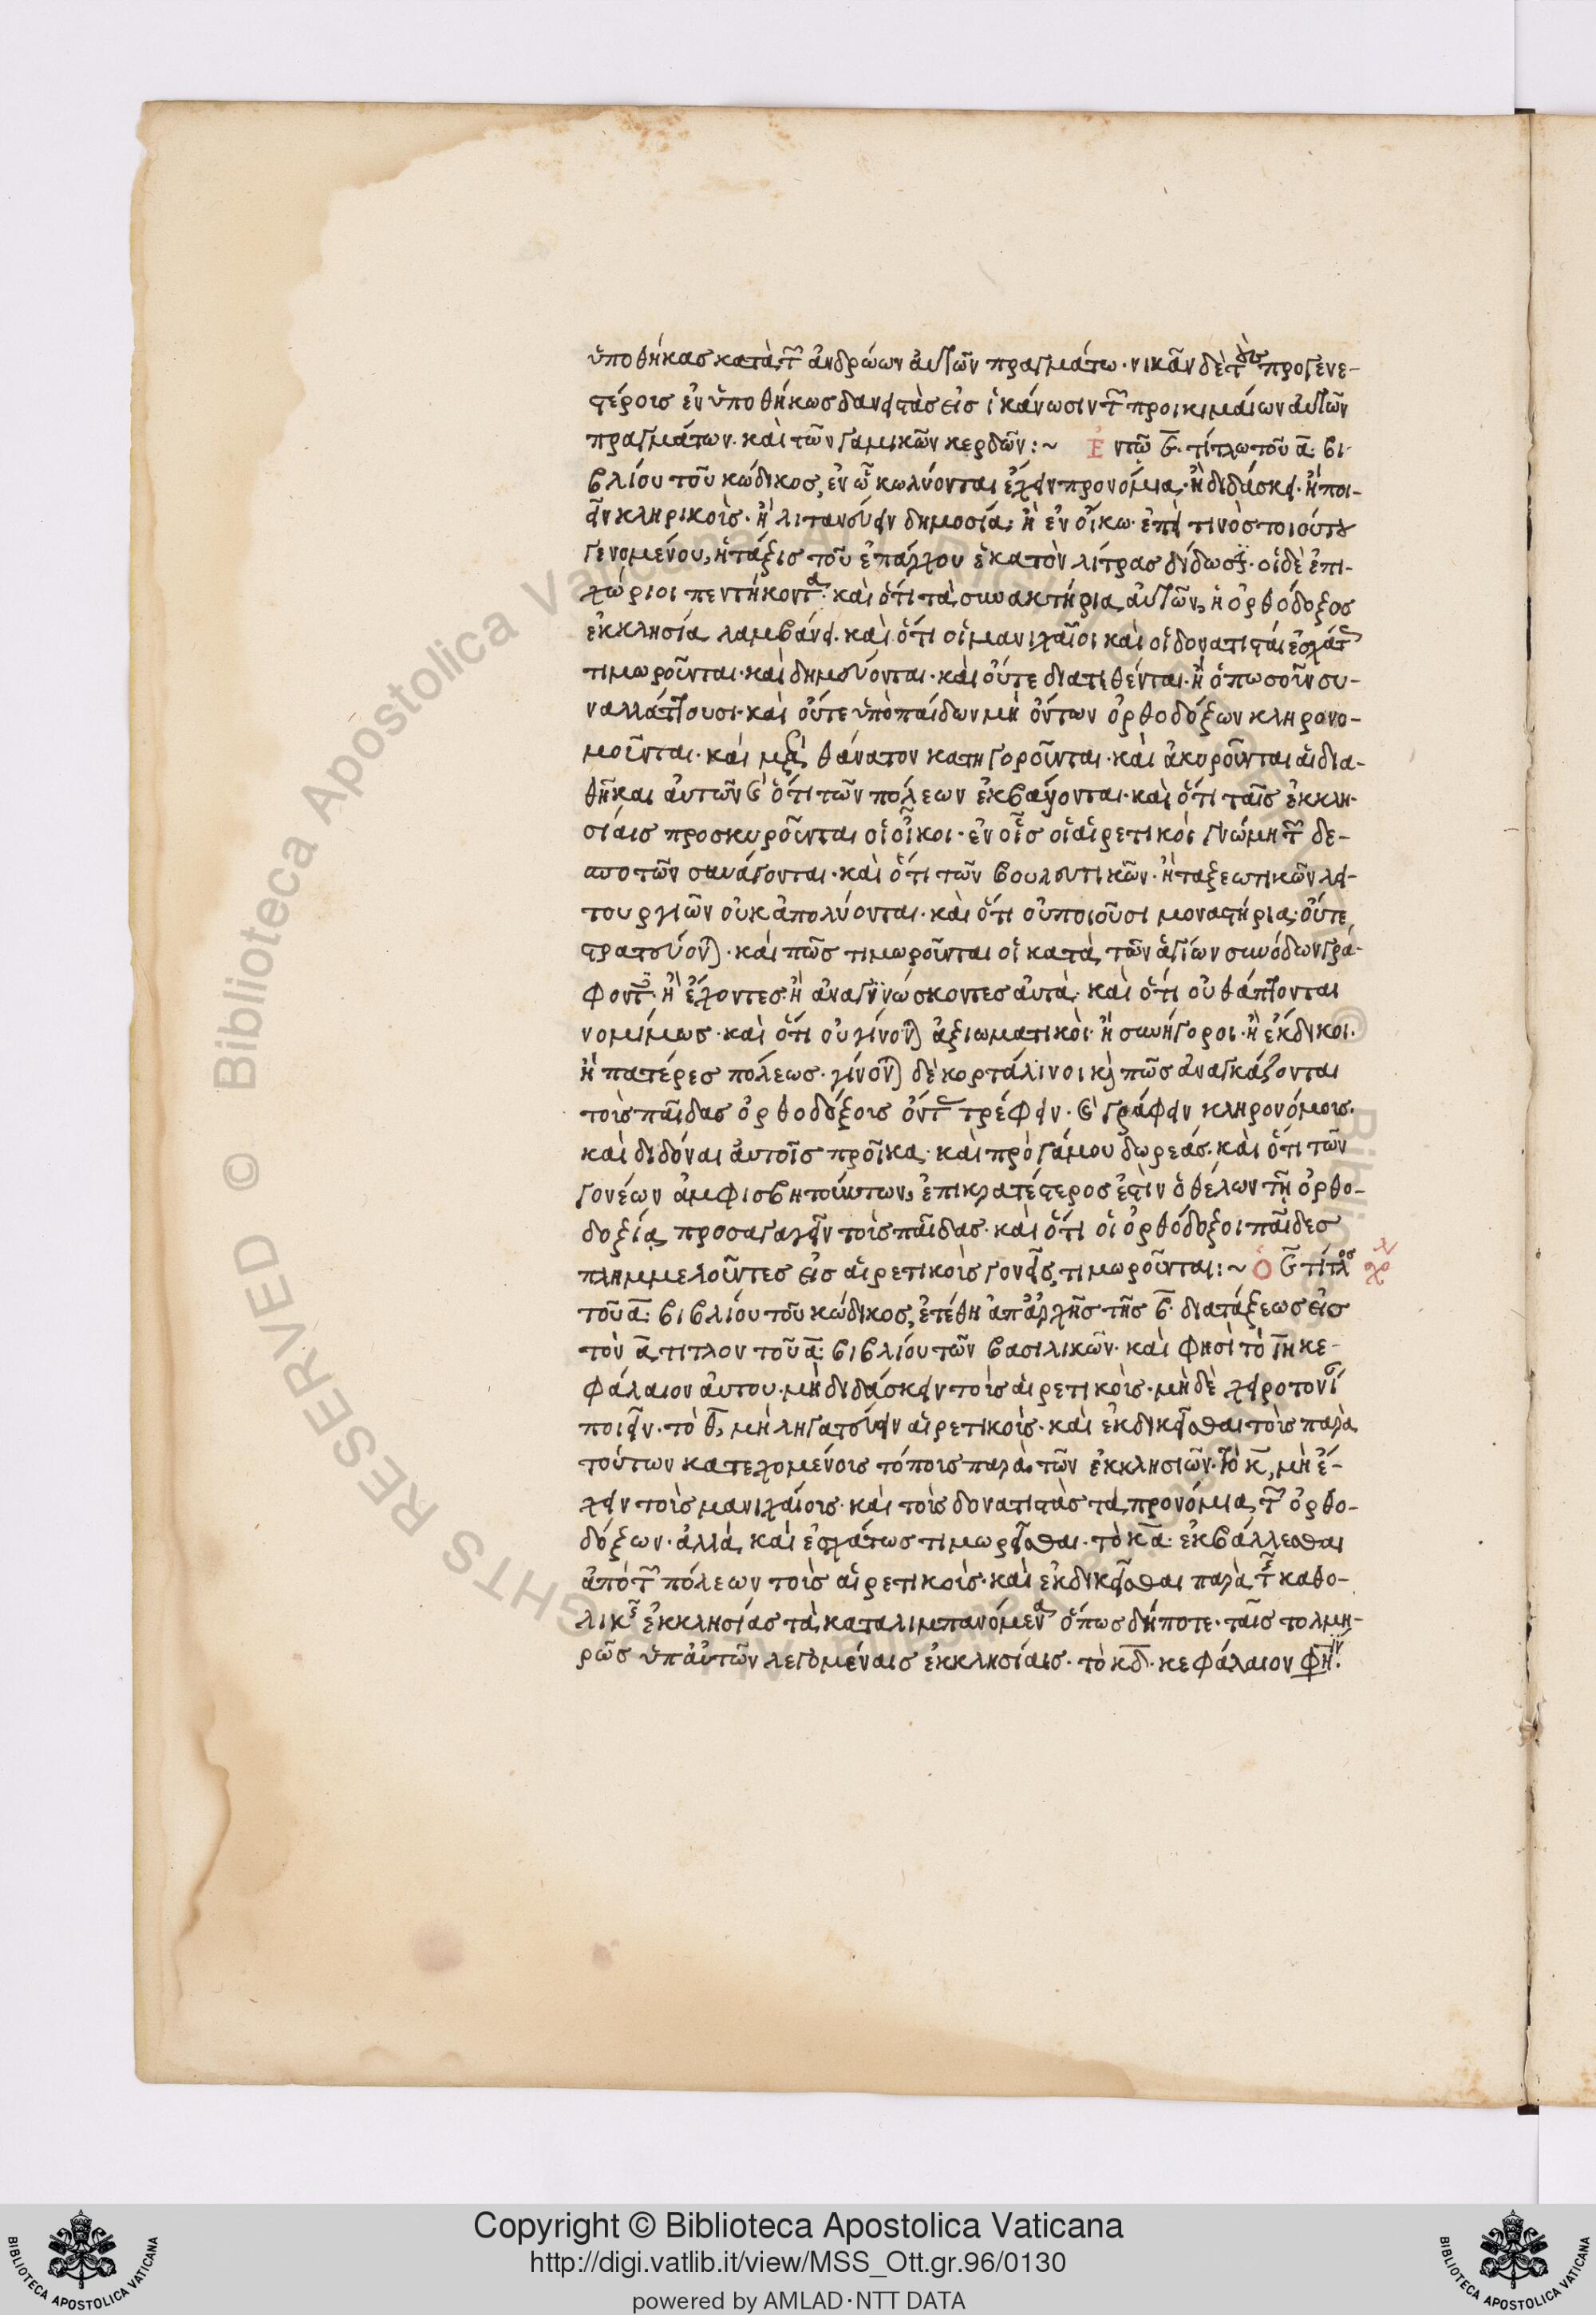 ὑποθήκας κατὰ τῶν ἀνδρώων αὐτῶν πραγμάτω· νικᾶν δὲ τοὺς προγενε-
στέροις ἐν ὑποθήκως δανειστὰς εἰς ἱκάνωσιν τῶν προικιμαίων αὐτῶν
πραγμάτων· καὶ τῶν γαμικῶν κερδῶν :~ Ἐν τῷ ε̅· τίτλω τοῦ α̅· βι-
βλίου τοῦ κώδικος, ἐν ᾧ κωλύονται ἔχειν προνόμια· ἢ διδάσκει· ἢ ποι-
εῖν κληρικοὶς· ἢ λιτανεύειν δημοσία· ἢ ἐν οἴκω· ἐπεὶ τινὸς τοιούτου
γενομένου, ἡ τάξις τοῦ ἐπάρχου ἑκατὸν λίτρας δίδωσι· οἱ δὲ ἐπι-
χώριοι πεντήκοντα· καὶ ὅτι τὰ συνακτήρια αὐτῶν, ἡ ὀρθόδοξος
ἐκκλησία λαμβάνει· καὶ ὅτι οἱ μανιχαῖοι καὶ οἱ δονατισταὶ ἐσχάτως
τιμωροῦνται· καὶ δημεύονται· καὶ οὔτε διατιθένται· ἢ ὁπωσοῦν συ-
ναλλάττουσι· καὶ οὔτε ὑπὸ παίδων μὴ ὄντων ὀρθοδόξων κληρονο-
μοῦνται· καὶ μετὰ θάνατον κατηγοροῦνται· καὶ ἀκυροῦνται αἱ δια-
θῆκαι αὐτῶν καὶ ὅτι τῶν πόλεων ἐκβάλλονται· καὶ ὅτι ταῖς ἐκκλη-
σίαις προσκυροῦνται οἱ οἶκοι· ἐν οἷς οἱ αἱρετικοὶ γνώμη τῶν δε-
σποτῶν συνάγονται· καὶ ὅτι τῶν βουλευτικῶν· ἢ ταξεωτικῶν λει-
τουργιῶν οὐκ ἀπολύονται· καὶ ὅτι οὐ ποιοῦσι μοναστήρια· οὔτε
στρατεύονται· καὶ πῶς τιμωροῦνται οἱ κατὰ τῶν ἁγίων συνόδων γρά-
φοντες· ἢ ἔχοντες· ἢ ἀναγινώσκοντες αὐτά· καὶ ὅτι οὐ θάπτονται
νομίμως· καὶ ὅτι οὐ γίνονται ἀξιωματικοὶ· ἢ συνήγοροι· ἢ ἔκδικοι·
ἢ πατέρες πόλεως· γίνονται δὲ κορτάλινοι καὶ πῶς ἀναγκάζονται
τοὶς παῖδας ὀρθοδόξοις ὄντας τρέφειν· καὶ γράφειν κληρονόμοις·
καὶ διδόναι αὐτοῖς προῖκα· καὶ πρὸ γάμου δωρεάς· καὶ ὅτι τῶν
γονέων ἀμφισβητούντων, ἐπικρατέστερος ἐστὶν ὁ θέλων τῆ ὀρθο-
δοξία προσαγαγεῖν τοὶς παῖδας· καὶ ὅτι οἱ ὀρθόδοξοι παῖδες
πλημμελοῦντες εἰς αἱρετικοὶς γονεῖς, τιμωροῦνται :~ Ὁ ε̅ τίτλος
τοῦ α̅· βιβλίου τοῦ κώδικος, ἐτέθη ἀπ᾽ ἀρχῆς τῆς β̅· διατάξεως εἰς
τὸν α̅ τιτλον τοῦ α̅· βιβλίου τῶν βασιλικῶν· καὶ φησὶ τὸ ι̅η̅ κε-
φάλαιον αὐτου· μὴ διδάσκειν τοὶς αἱρετικοὶς· μὴ δὲ χειροτονίας
ποιεῖν· τὸ ι̅θ̅, μὴ ληγατεύειν αἱρετικοὶς· καὶ ἐκδικεῖσθαι τοὶς παρὰ
τούτων κατεχομένοις τόποις παρὰ τῶν ἐκκλησιῶν· τὸ κ̅, μὴ ἔ-
χειν τοὶς μανιχαίοις· καὶ τοὶς δονατιστὰς τὰ προνόμια τῶν ὀρθο-
δόξων· ἀλλὰ καὶ ἐσχάτως τιμωρεῖσθαι· τὸ κ̅α̅· ἐκβάλλεσθαι
ἀπὸ τῶν πόλεων τοὶς αἱρετικοὶς· καὶ ἐκδικεῖσθαι παρὰ τῆς καθο-
λικῆς ἐκκλησίας τὰ καταλιμπανόμενα ὅπως δήποτε· ταῖς τολμη-
ρῶς ὑπ᾽ αὐτῶν λεγομέναις ἐκκλησίαις· τὸ κ̅δ̅· κεφάλαιον φησίν·
Copyright © Biblioteca Apostolica Vaticana
http://digi.vatlib.it/view/MSS_Ott.gr.96/0130
powered by AMLAD·NTT DATA
BIBLIOTECA APOSTOLICA VATICANA
BIBLIOTECA APOSTOLICA VATICANA